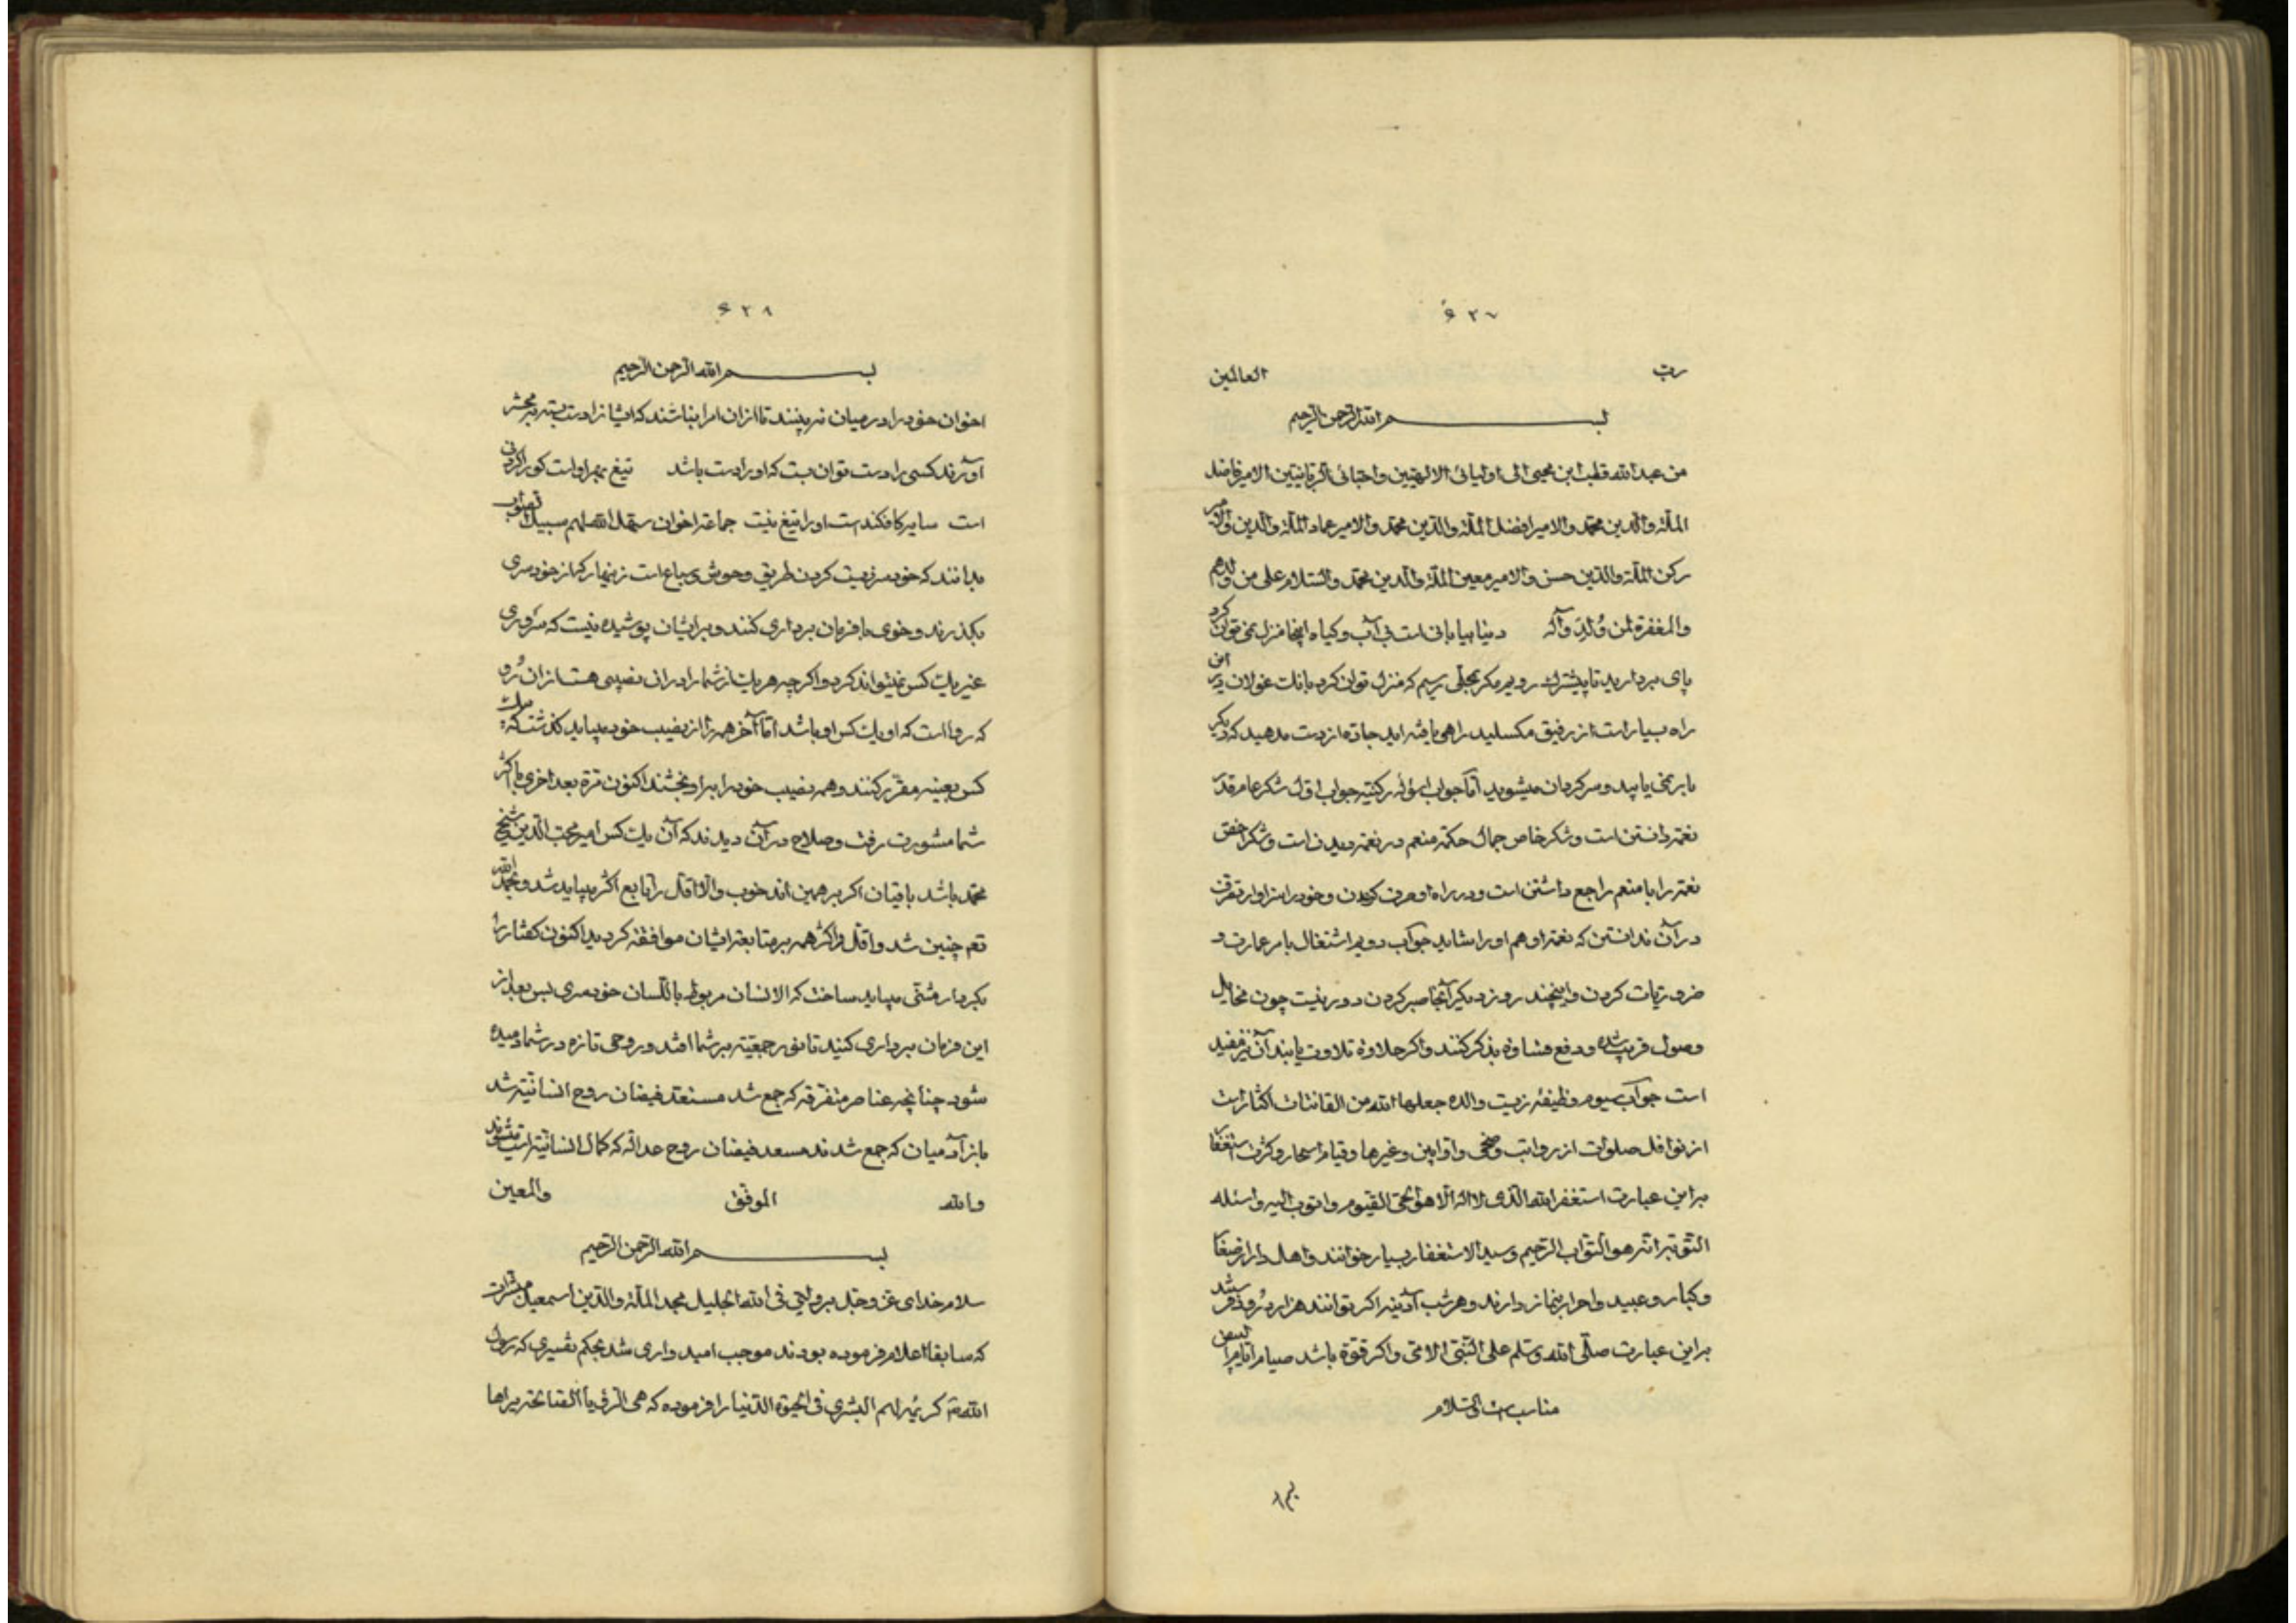 ۶۲۷
رب العالمین
بسم الله الرحمن الرحیم
من عبدالله قطب ابن محیی الی اولیائی الالهیین واحبائی الربانیین الامیر فاضل
الملة والدین محمد والامیر افضل الملة والدین محمد والامیر عماد الملة والدین والامیر
رکن الملة والدین حسن والامیر معین الملة والدین محمد والسلام علی من ولدهم
والمغفرة لمن وُلِدَ وآله دنیا بیابانی است بی آب و کیاه اینجا منزل نمی توان کرد
پای بردارید تا پیشترک رویم مکر بمحلی رسیم که منزل توان کرد بانک غولان در این
راه بسیار است از رفیق مکسلید راهی یافته اید جاده از دست مدهید که دیکر
باز نمی یابید و سرکردان میشوید اما جواب اسؤله رکنیه جواب اول شکر عام قدر
نعمة دانستن است و شکر خاص جمال حکمة منعم در نعمة دیدن است و شکر اخص
نعمة را با منعم راجع داشتن است و در راه او صرف کردن و خود را سزاوار تصرف
در آن ندانستن که نعمة او هم او را شاید جواب دویم اشتغال بامر عمارت و
ضروریات کردن و اینچند روز دیکر آنجا صبر کردن دور نیست چون مخایل
وصول قریب شده و دفع قساوة بذکر کنند و اکر حلاوة تلاوت یابند آن نیز مفید
است جواب سیوم وظیفه زینت والده جعلها الله من القانتات اکثار است
از نوافل صلوات از رواتب وضحی واوابین وغیرها وقیام اسحار و کثرت استغفار
براین عبارت استغفرالله الذی لا اله الا هو الحی القیوم واتوب الیه واسئله
التوبة انه هو التواب الرحیم وسید الاستغفار بسیار خوانند واهل دار از صغار
وکبار وعبید واحرار بنماز دارند وهر شب آدینه اکر توانند هزار درود فرستند
براین عبارت صلی الله وسلم علی النبی الامی واکر قوة باشد صیام ایام البیض
مناسب است والسلام
۶۲۸
بسم الله الرحمن الرحیم
اخوان خود را در میان نه بینند تا از ان امرا نباشند که ایشانرا دست بسته به محشر
آورند کسی را دست توان بست که او را دست باشد تیغ بهر اوست کورا کردنی
است سایه کافکندست او را تیغ نیست جماعة اخوان سهل الله لهم سبیل الصواب
بدانند که خود سر زیست کردن طریق وحوش و سباع است زینهار که از خودسری
بکذرند و خوی بافرمان برداری کنند و برایشان پوشیده نیست که سروری
غیر یک کس نمیتواند کرد و اکرچه هر یک از شما را در ان نصیبی هست از ان رو
که رواست که او یک کس او باشد اما آخر همه را از نصیب خود میباید کذشت که یک
کس بعینه مقرر کنند و همه نصیب خود را براو بخشند اکنون مرة بعد اخری با اکثر
شما مشورت رفت و صلاح در آن دیدند که آن یک کس امیر محب الدین شیخ
محمد باشد باقیان اکر بر همین اند خوب والا اقل را تابع اکثر میباید شد و بحمد الله
تعم چنین شد و اقل و اکثر همه بر متابعة ایشان موافقة کردید اکنون کفتار را
بکردار مثنی میباید ساخت که الانسان مربوط باللسان خودسری بس بعد از
این فرمان برداری کنید تا نور جمعیت بر شما افتد و روحی تازه در شما دمیده
شود چنانچه عناصر متفرقه که جمع شد مستعد فیضان روح انسانیة شد
باز آدمیان که جمع شدند مسعد فیضان روح عدالة که کمال انسانیة است میشوند
والله الموفق والمعین
بسم الله الرحمن الرحیم
سلام خدای عز وجل بر ولیی فی الله الجلیل مجد الملة والدین اسمعیل مبشرات
که سابقا اعلام فرموده بودند موجب امید واری شد بحکم تفسیری که رسول
الله ص کریمه لهم البشری فی الحیوة الدنیا را فرموده که هی الرؤیا الصالحة یراها